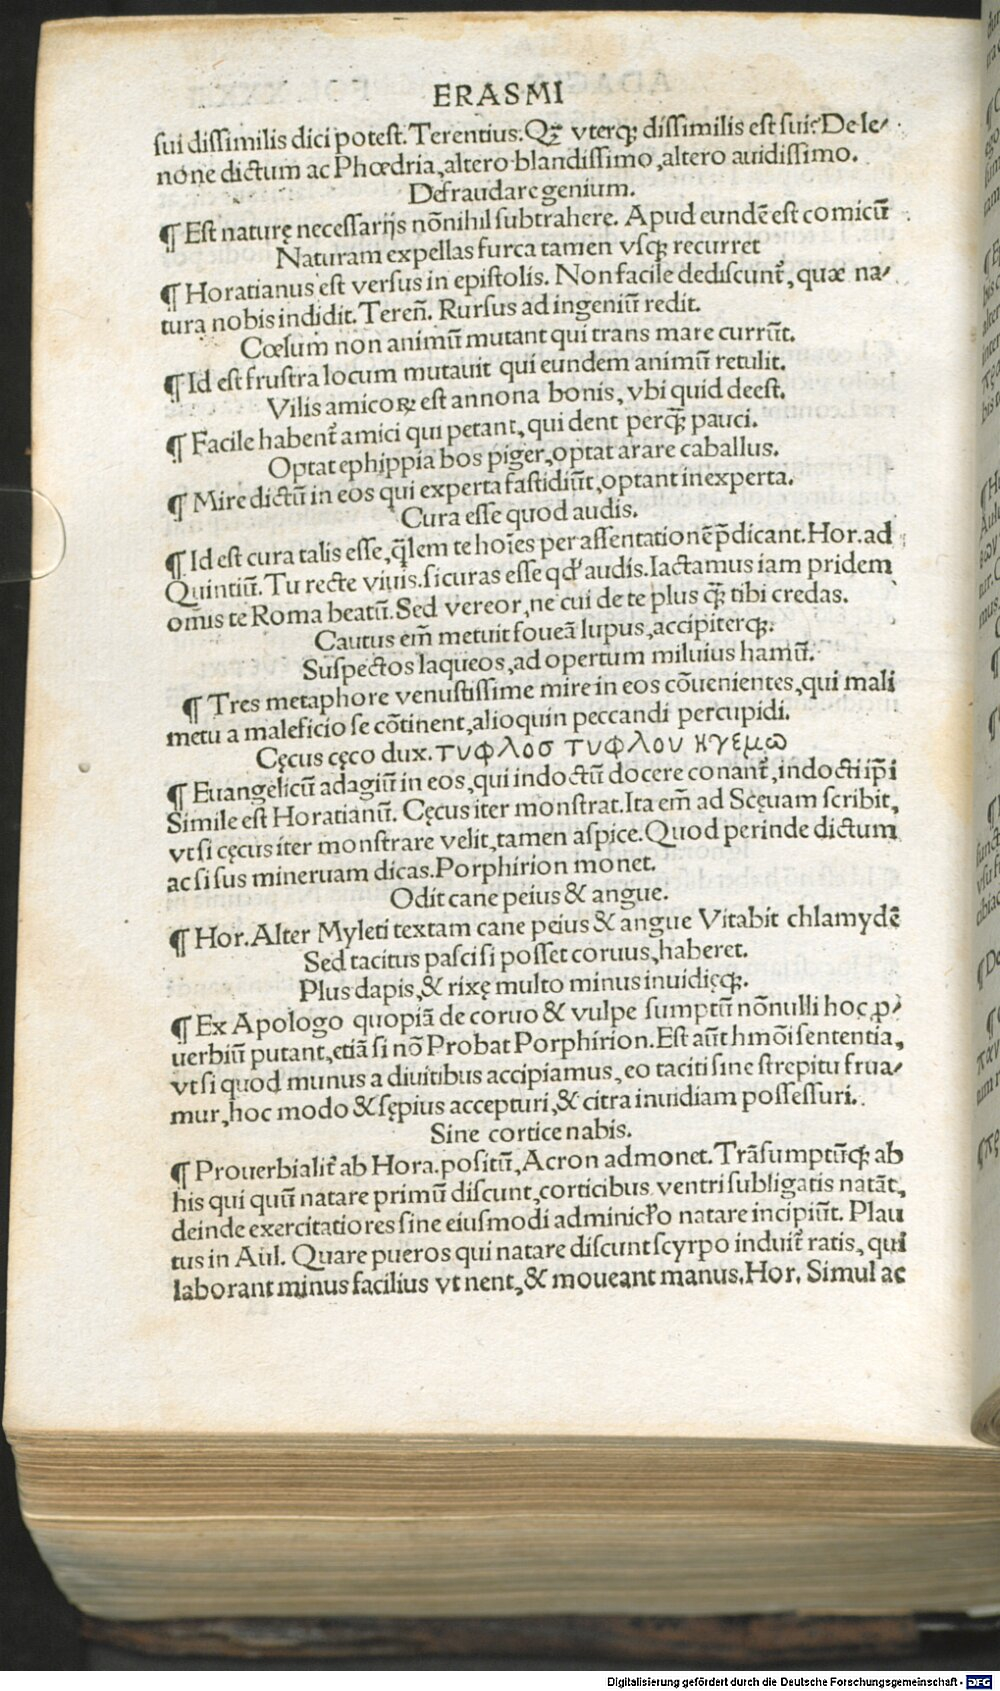 ERASMI
sui dissimilis dici potest. Terentius. Qꝫ vterqꝫ dissimilis est sui? De le⸗
none dictum ac Phœdria, altero blandissimo, altero auidissimo.
Defraudare genium.
¶ Est naturę necessarijs nõnihil subtrahere. Apud eundẽ est comicũ
Naturam expellas furca tamen vsqꝫ recurret
¶ Horatianus est versus in epistolis. Non facile dediscunt᷑, quæ na⸗
tura nobis indidit. Tereñ. Rursus ad ingeniũ redit.
Cœlum non animũ mutant qui trans mare currũt.
¶ Id est frustra locum mutauit qui eundem animũ retulit.
Vilis amicoꝝ est annona bonis, vbi quid deest.
¶ Facile habent᷑ amici qui petant, qui dent perqꝫ̃ pauci.
Optat ephippia bos piger, optat arare caballus.
¶ Mire dictũ in eos qui experta fastidiũt, optant inexperta.
Cura esse quod audis.
¶ Id est cura talis esse, q̃lem te hoĩes per assentationẽ p̃dicant. Hor. ad
Quintiũ. Tu recte viuis. si curas esse qđ audis. Iactamus iam pridem
om̃is te Roma beatũ. Sed vereor, ne cui de te plus qꝫ̃ tibi credas.
Cautus em̃ metuit foueã lupus, accipiterqꝫ.
Suspectos laqueos, ad opertum miluius hamũ.
¶ Tres metaphore venustissime mire in eos cõuenientes, qui mali
metu a maleficio se cõtinent, alioquin peccandi percupidi.
Cęcus cęco dux. τυφλοσ τυφλου ηγεμω
¶ Euangelicũ adagiũ in eos, qui indoctũ docere conant᷑, indocti ip̃i
Simile est Horatianũ. Cęcus iter monstrat. Ita em̃ ad Scęuam scribit,
vt si cęcus iter monstrare velit, tamen aspice. Quod perinde dictum
ac si sus mineruam dicas. Porphirion monet.
Odit cane peius & angue.
¶ Hor. Alter Myleti textam cane peius & angue Vitabit chlamydẽ
Sed tacitus pasci si posset coruus, haberet.
Plus dapis, & rixę multo minus inuidięqꝫ.
¶ Ex Apologo quopiã de coruo & vulpe sumptũ nõnulli hoc ꝓ⸗
uerbiũ putant, etiã si nõ Probat Porphirion. Est aũt hmõi sententia,
vt si quod munus a diuitibus accipiamus, eo taciti sine strepitu frua⸗
mur, hoc modo & sępius accepturi, & citra inuidiam possessuri.
Sine cortice nabis.
¶ Prouerbialit᷑ ab Hora. positũ, Acron admonet. Trãsumptũqꝫ ab
his qui quũ natare primũ discunt, corticibus ventri subligatis natãt,
deinde exercitatiores sine eiusmodi adminicľo natare incipiũt. Plau
tus in Aul. Quare pueros qui natare discunt scyrpo induit᷑ ratis, qui
laborant minus facilius vt nent, & moueant manus. Hor. Simul ac
Digitalisierung gefördert durch die Deutsche Forschungsgemeinschaft - DFG